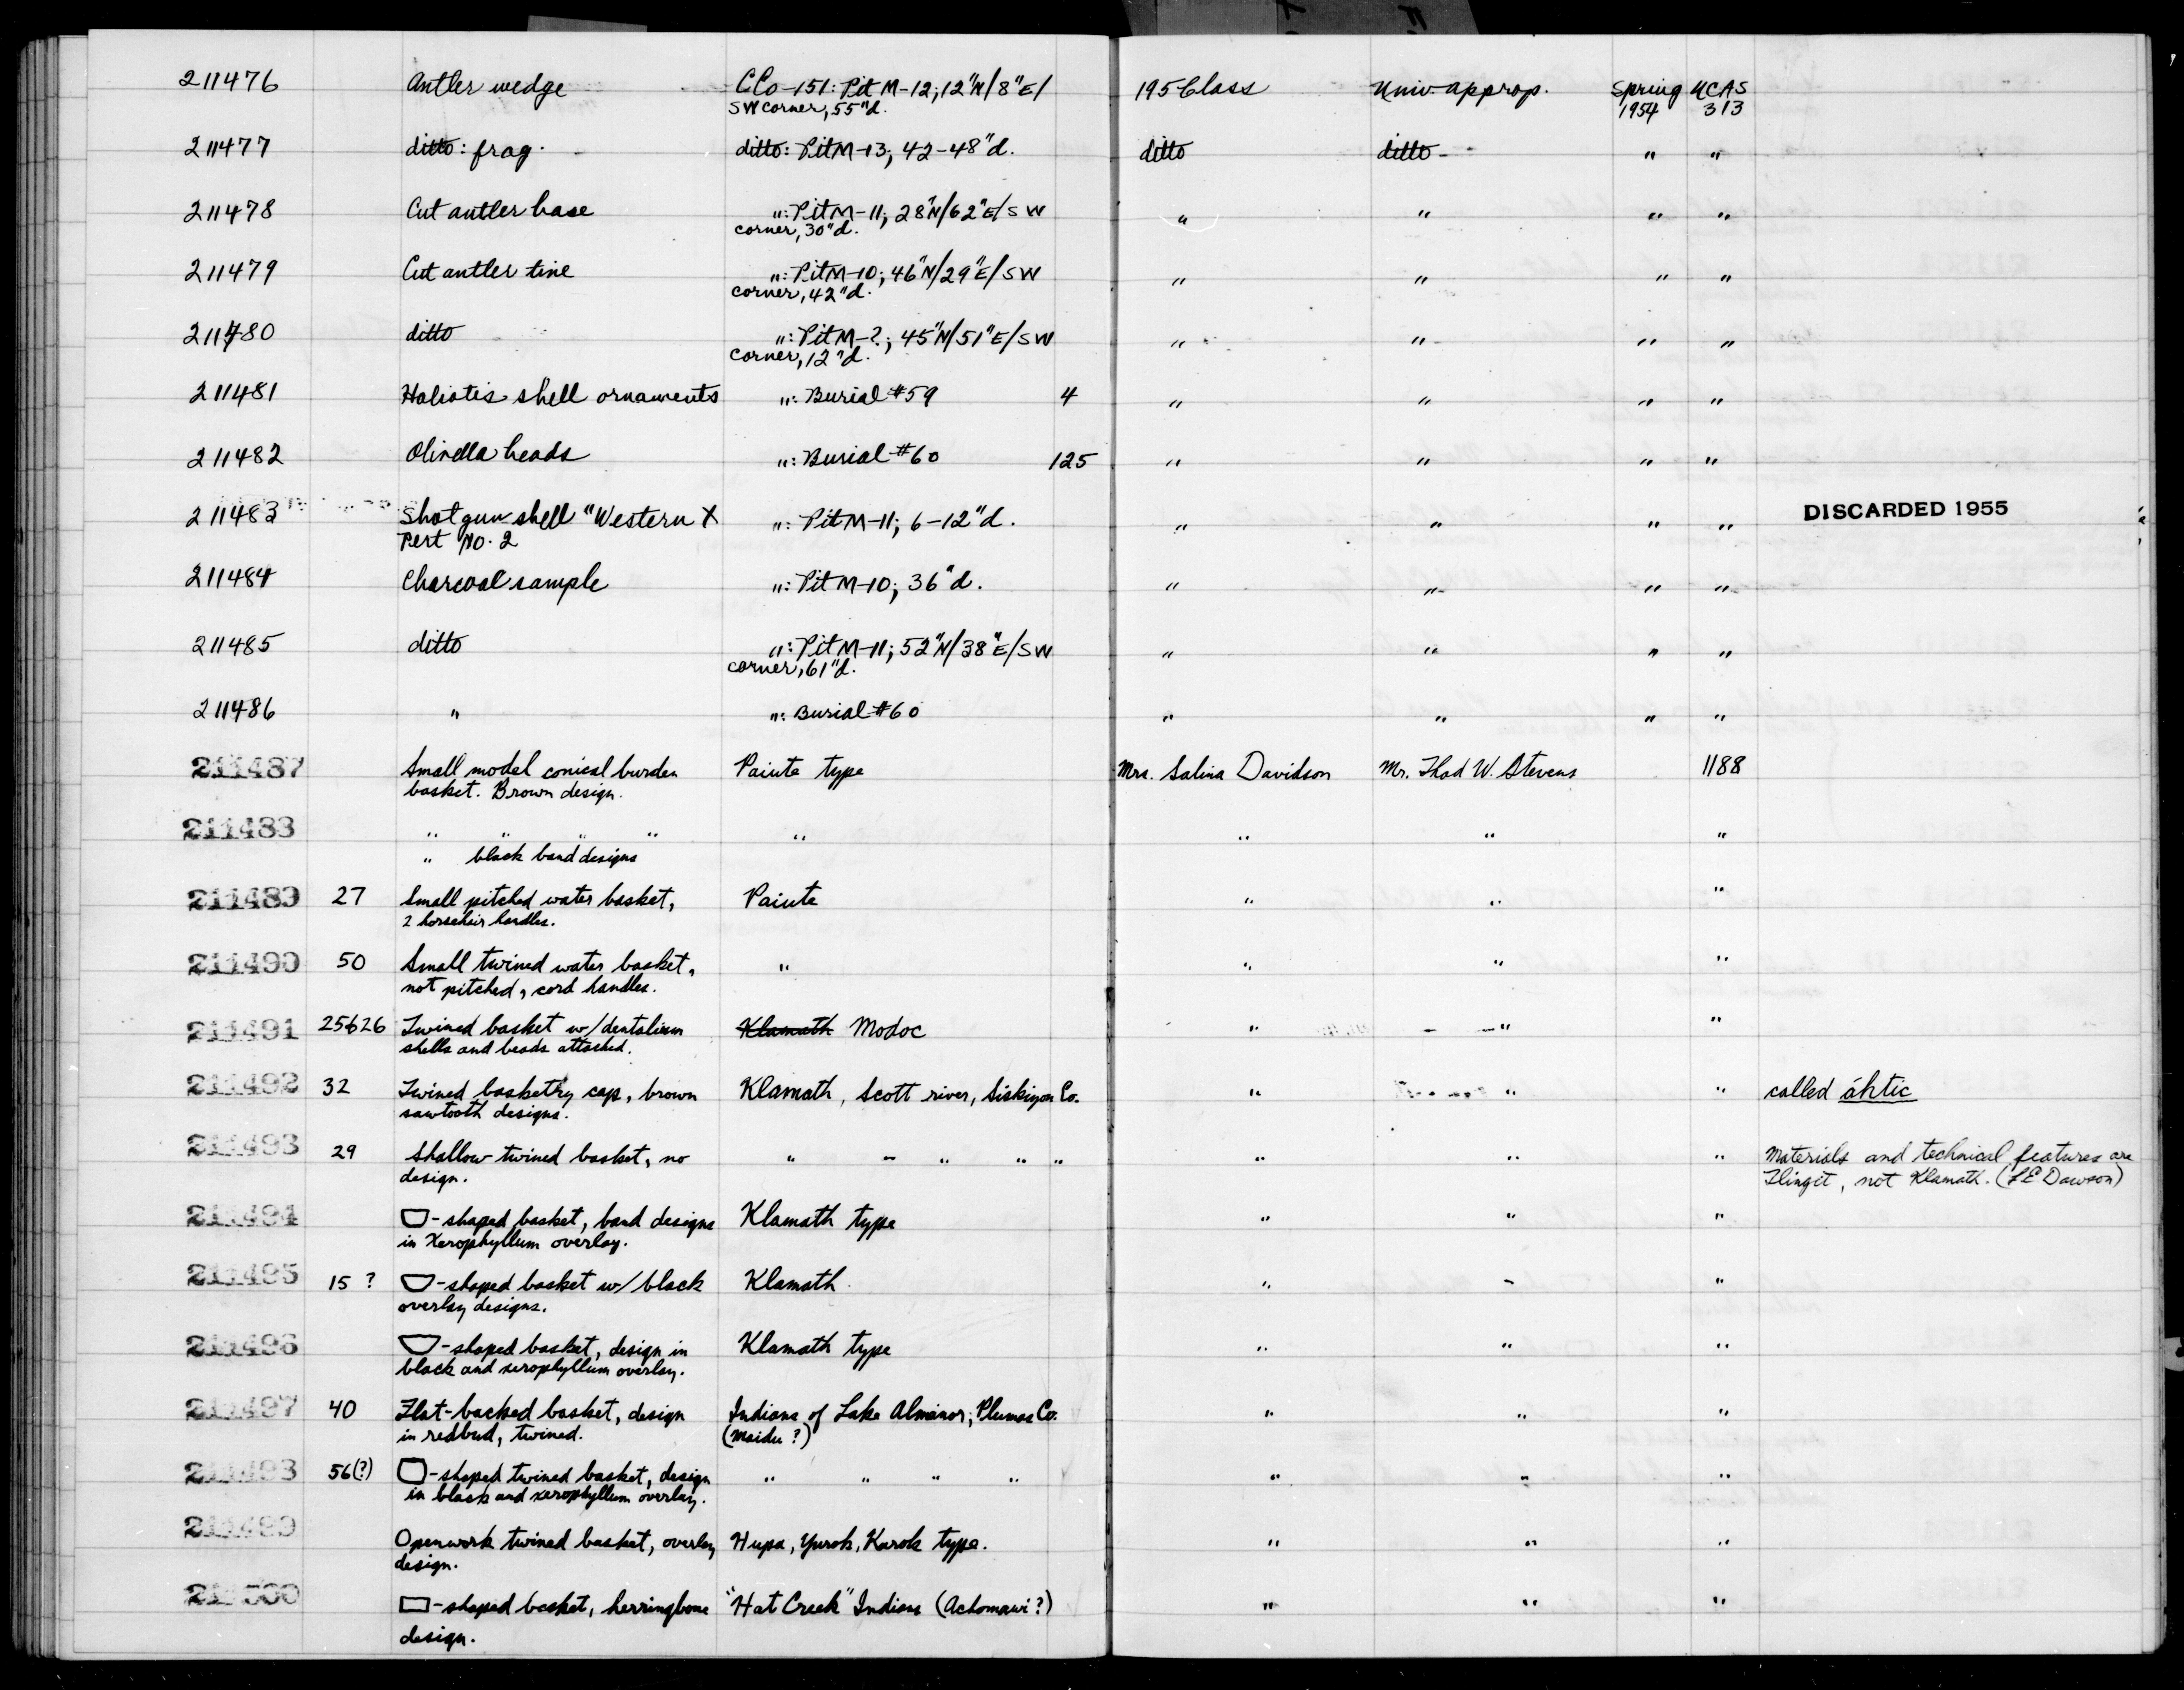 211476 Antler wedge CCo-151: Pit M-12; 12"N/8"E/ 195 Class Univ. approp. Spring UCAS
SW corner, 55"d. 1954 313
211477 ditto: frag. ditto: Pit M-13; 42-48"d. ditto ditto " "
211478 Cut antler base ": Pit M-11; 28"N/62"E/SW " " " "
corner, 30"d.
211479 Cut antler tine ": Pit M-10; 46"N/29"E/SW " " " "
corner, 42"d.
211480 ditto ": Pit M-?; 45"N/51"E/SW " " " "
corner, 12"d.
211481 Haliotis shell ornaments ": Burial #59 4 " " " "
211482 Olivella beads ": Burial #60 125 " " " "
211483 Shotgun shell "Western X ": Pit M-11; 6-12"d. " " " " DISCARDED 1955
Pert No. 2
211484 Charcoal sample ": Pit M-10; 36"d. " " " "
211485 ditto ": Pit M-11; 52"N/38"E/SW " " " "
corner, 61"d.
211486 " ": Burial #60 " " " "
211487 Small model conical burden Paiute type Mrs. Salina Davidson Mr. Thad W. Stevens 1188
basket. Brown design.
211488 " " " " " " " "
" black band designs
211489 27 Small pitched water basket, Paiute " " "
2 horsehair handles.
211490 50 Small twined water basket, " " " "
not pitched, cord handles.
211491 25626 Twined basket w/dentalium Klamath Modoc " " "
shells and beads attached.
211492 32 Twined basketry cap, brown Klamath, Scott river, Siskiyou Co. " " " called áhtic
sawtooth designs.
211493 29 Shallow twined basket, no " " " " " " " " Materials and technical features are
design. Tlingit, not Klamath. (LE Dawson)
211494 -shaped basket, band designs Klamath type " " "
in Xerophyllum overlay.
211495 15 ? -shaped basket w/ black Klamath. " " "
overlay designs.
211496 -shaped basket, design in Klamath type " " "
black and xerophyllum overlay.
211497 40 Flat-backed basket, design Indians of Lake Almanor; Plumas Co. " " "
in redbud, twined. (Maidu ?)
211498 56(?) -shaped twined basket, design " " " " " " "
in black and xerophyllum overlay.
211499 Openwork twined basket, overlay Hupa, Yurok, Karok type. " " "
design.
211500 -shaped basket, herringbone "Hat Creek" Indians (Achomawi?) " " "
design.